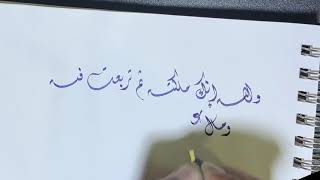 والله إنك ملكته ثم تربعت فيه
ومال